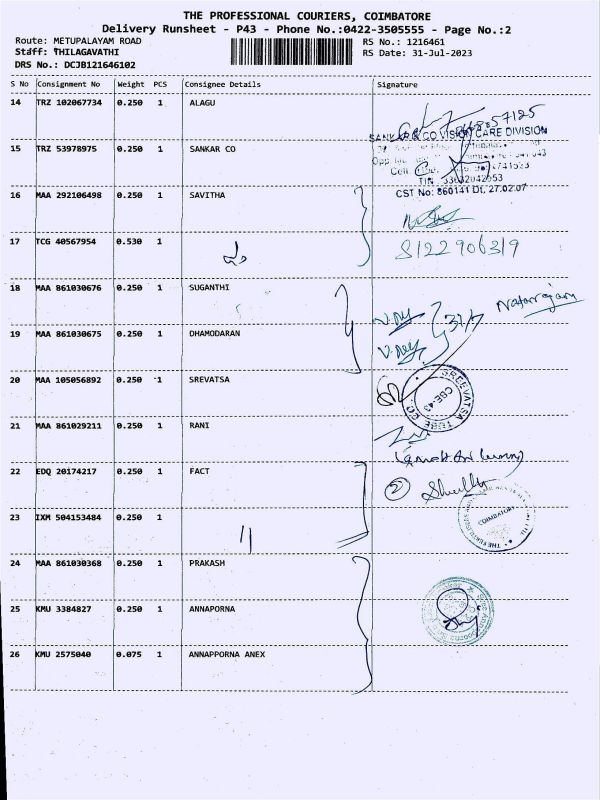 THE PROFESSIONAL COURIERS, COIMBATORE
Delivery Runsheet - P43 - Phone No.:0422-3505555 - Page No.:2
Route: METUPALAYAM ROAD RS No.: 1216461
Staff: THILAGAVATHI RS Date: 31-Jul-2023
DRS No.: DCJB121646102
S No Consignment No Weight PCS Consignee Details Signature
14 TRZ 102067734 0.250 1 ALAGU
SANKAR & CO VISION CARE DIVISION
15 TRZ 53978975 0.250 1 SANKAR CO
TIN 33632042553
CST No: 860141 Dt. 27.02.07
16 MAA 292106498 0.250 1 SAVITHA
17 TCG 40567954 0.530 1 8122906319
18 MAA 861030676 0.250 1 SUGANTHI
Natarajan
19 MAA 861030675 0.250 1 DHAMODARAN
31/7
20 MAA 105056892 0.250 1 SREVATSA
SREEVATSA TUBE CO. CBE-43
21 MAA 861029211 0.250 1 RANI
22 EDQ 20174217 0.250 1 FACT
2
23 IXM 504153484 0.250 1
COIMBATORE
24 MAA 861030368 0.250 1 PRAKASH
25 KMU 3384827 0.250 1 ANNAPORNA
26 KMU 2575040 0.075 1 ANNAPPORNA ANEX